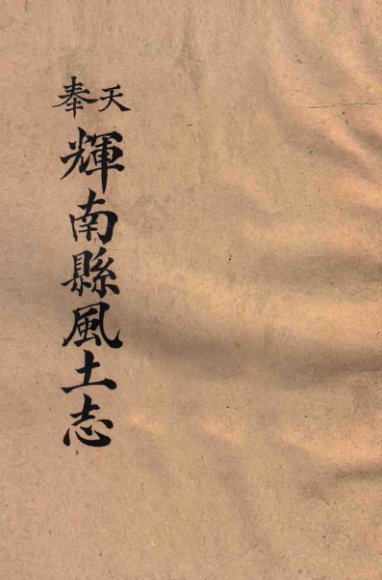 奉天
輝南縣風土志